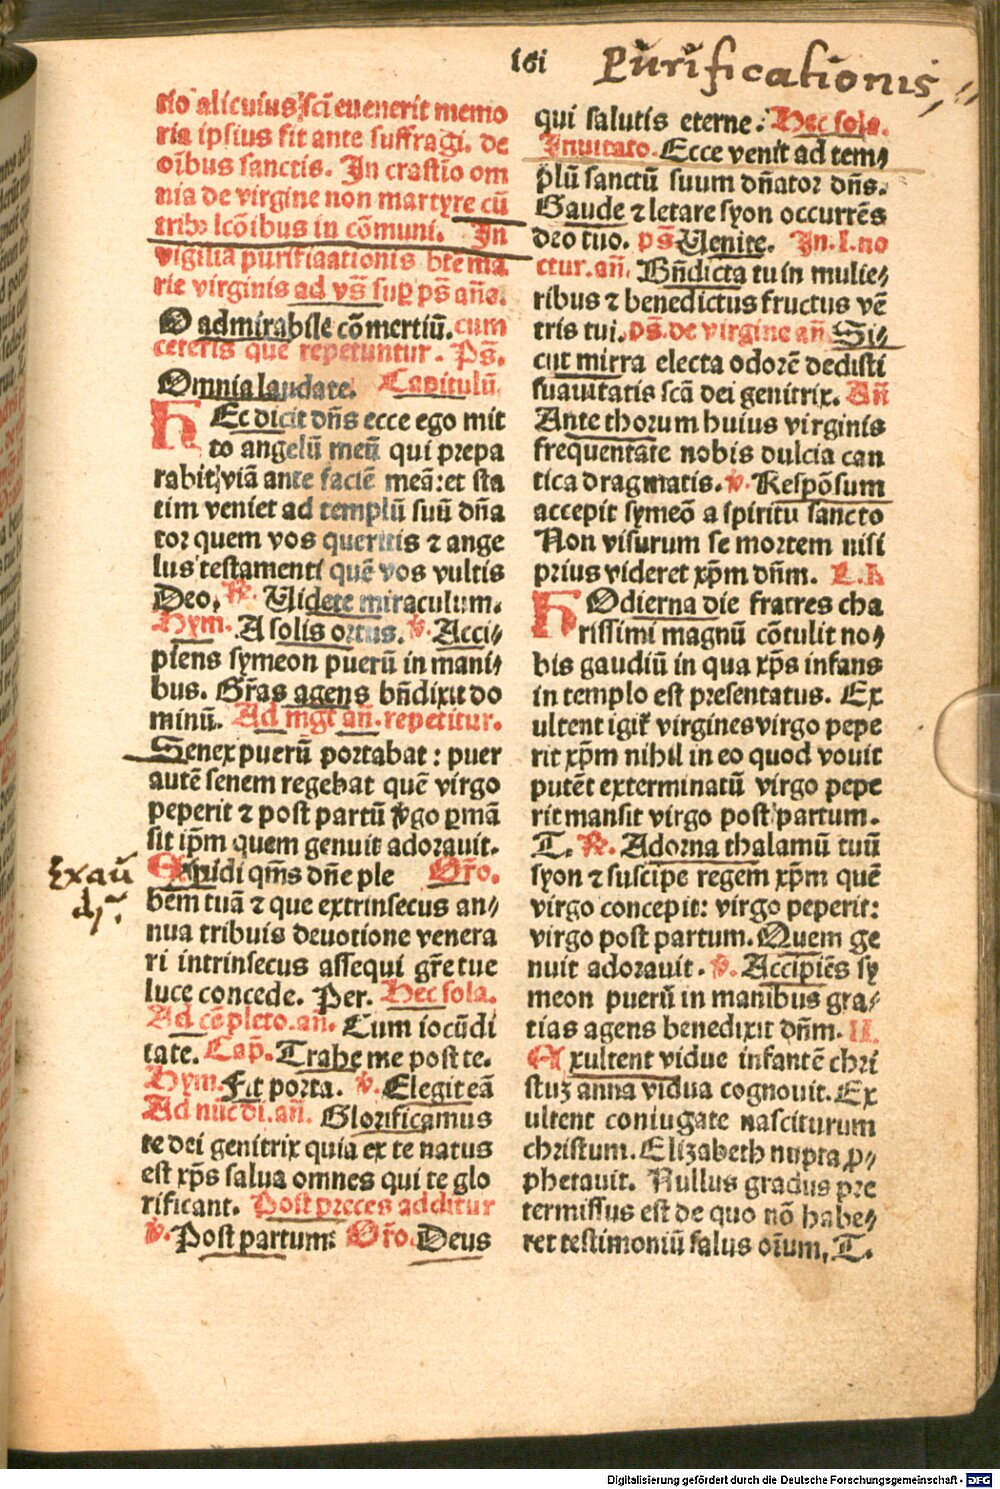 161
Purificationis
tio alicuius scī euenerit memo
ria ipsius fit ante suffragi. de
oībus sanctis. In crastīo om
nia de virgine non martyre cū
tribꝰ lcōibus in cōmuni. In
vigilia purifiaationis bte ma
rie virginis ad vs̄ suꝑ ps̄ añe.
O admirabile cōmertiū. cum
ceteris que repetuntur. Ps̄.
Omnia laudate. Capitulū
HEc dicit dñs ecce ego mit
to angelū meū qui prepa
rabit viā ante faciē meā: et sta
tim veniet ad templū suū dña
tor quem vos queritis ⁊ ange
lus testamenti quē vos vultis
Deo. ℟. Uidete miraculum.
Hym. A solis ortus. ℣. Acci⸗
piens symeon puerū in mani⸗
bus. Gr̄as agens bñdixit do
minū. Ad mgt añ. repetitur.
Senex puerū portabat : puer
autē senem regebat quē virgo
peperit ⁊ post partū v̄go ꝑmā
sit ip̄m quem genuit adorauit.
Exaudi qm̄s dñe ple Oro.
Exau
di
bem tuā ⁊ que extrinsecus an⸗
nua tribuis deuotione venera
ri intrinsecus assequi gr̄e tue
luce concede. Per. Hec sola.
Ad cōpleto. añ. Cum iocūdi
tate. Cap̄. Trahe me post te.
Hym. Fit porta. ℣. Elegit eā
Ad nūc di. añ. Glorificamus
te dei genitrix quia ex te natus
est xp̄s salua omnes qui te glo
rificant. Post preces additur
℣. Post partum: Or̄o. Deus
qui salutis eterne. Hec sola.
Inuitato. Ecce venit ad tem⸗
plū sanctū suum dñator dñs.
Gaude ⁊ letare syon occurrēs
deo tuo. ps̄ Uenite. In. I. no
ctur. añ. Bñdicta tu in mulie⸗
ribus ⁊ benedictus fructus vē
tris tui. ps̄. de virgine añ Si⸗
cut mirra electa odorē dedisti
suauitatis scā dei genitrix. Añ
Ante thorum huius virginis
frequentate nobis dulcia can
tica dragmatis. ℣. Respōsum
accepit symeō a spiritu sancto
Non visurum se mortem nisi
prius videret xp̄m dñm. L. I.
HOdierna die fratres cha
rissimi magnū cōtulit no⸗
bis gaudiū in qua xp̄s infans
in templo est presentatus. Ex
ultent igit̄ virgines virgo pepe
rit xp̄m nihil in eo quod vouit
putēt exterminatū virgo pepe
rit mansit virgo post partum.
T. ℟. Adorna thalamū tuū
syon ⁊ suscipe regem xp̄m quē
virgo concepit: virgo peperit:
virgo post partum. Quem ge
nuit adorauit. ℣. Accipiēs sy
meon puerū in manibus gra⸗
tias agens benedixit dñm. II.
Exultent vidue infantē chri
stuʒ anna vidua cognouit. Ex
ultent coniugate nasciturum
christum. Elizabeth nupta ꝓ⸗
phetauit. Nullus gradus pre
termissus est de quo nō habe⸗
ret testimoniū salus oīum. T.
Digitalisierung gefördert durch die Deutsche Forschungsgemeinschaft - DFG